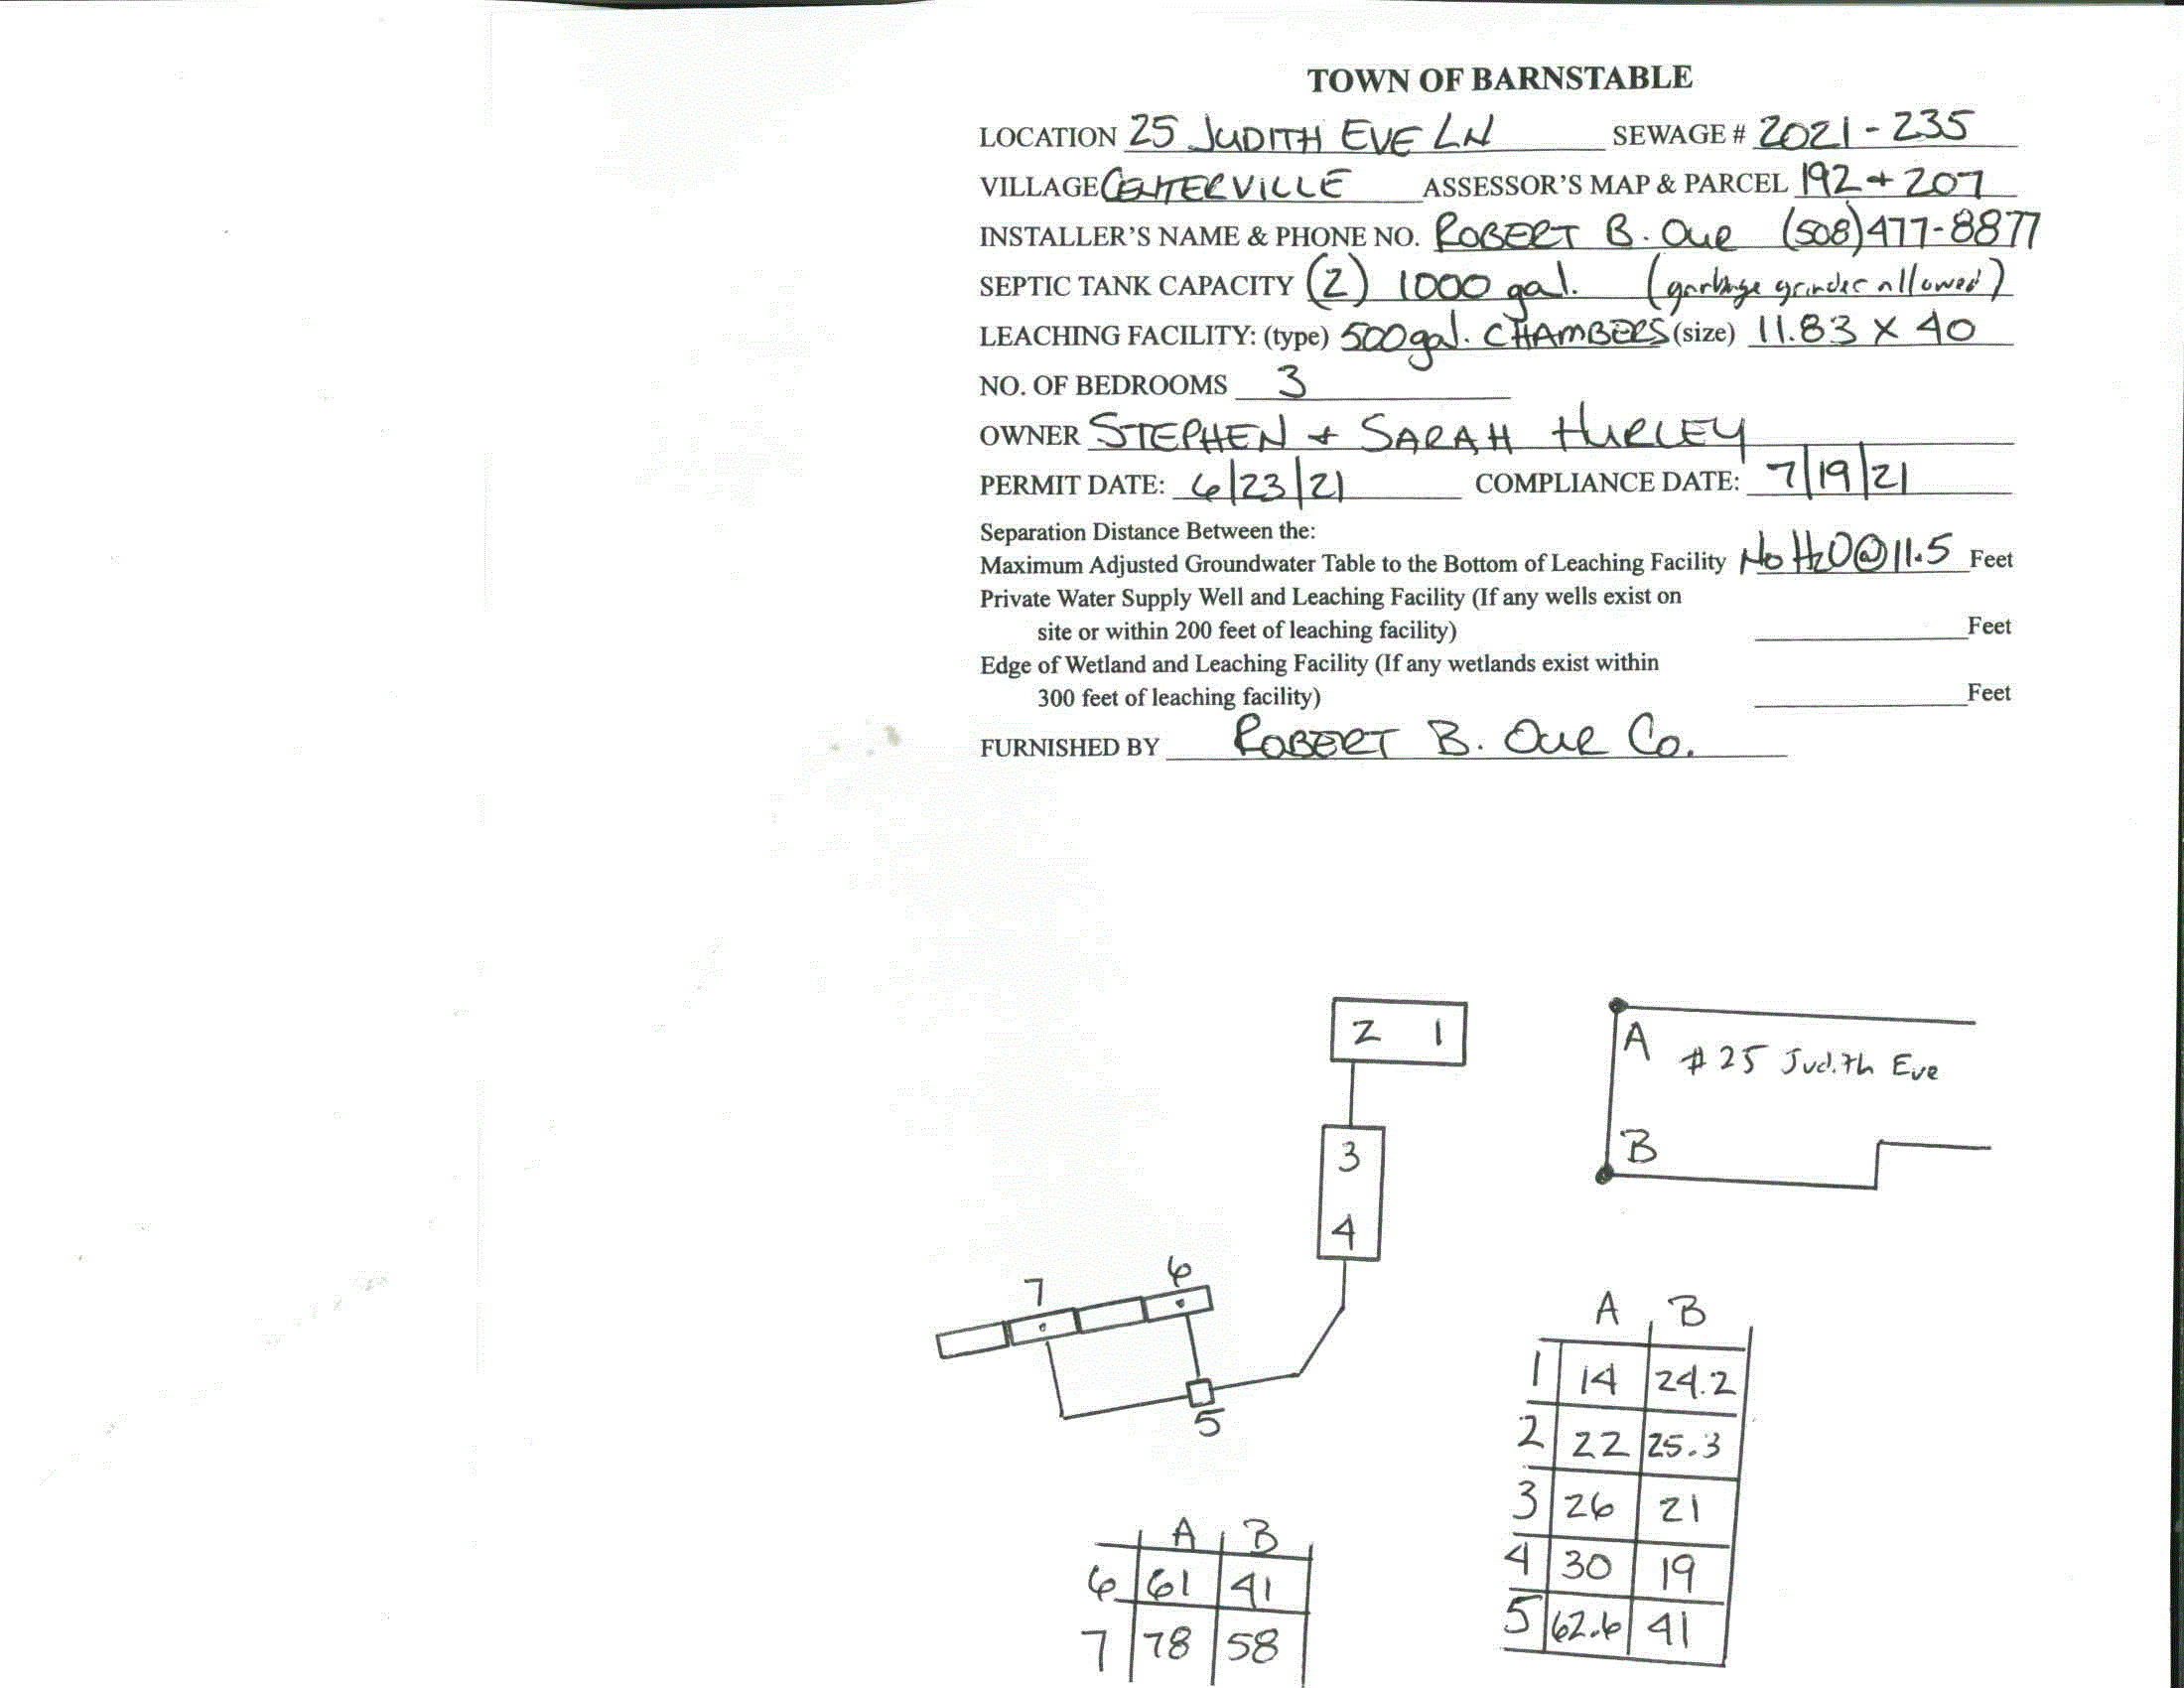 TOWN OF BARNSTABLE
LOCATION 25 JUDITH EVE LN SEWAGE # 2021-235
VILLAGE CENTERVILLE ASSESSOR'S MAP & PARCEL 192 + 207
INSTALLER'S NAME & PHONE NO. ROBERT B. OUR (508)477-8877
SEPTIC TANK CAPACITY (2) 1000 gal. (garbage grinder allowed)
LEACHING FACILITY: (type) 500 gal. CHAMBERS (size) 11.83 X 40
NO. OF BEDROOMS 3
OWNER STEPHEN + SARAH HURLEY
PERMIT DATE: 6/23/21 COMPLIANCE DATE: 7/19/21
Separation Distance Between the:
Maximum Adjusted Groundwater Table to the Bottom of Leaching Facility No H2O@11.5 Feet
Private Water Supply Well and Leaching Facility (If any wells exist on
site or within 200 feet of leaching facility) Feet
Edge of Wetland and Leaching Facility (If any wetlands exist within
300 feet of leaching facility) Feet
FURNISHED BY ROBERT B. OUR Co.
2 1
A
#25 Judith Eve
B
3
4
6
7
5
A B
1 14 24.2
2 22 25.3
3 26 21
4 30 19
5 62.6 41
A B
6 61 41
7 78 58